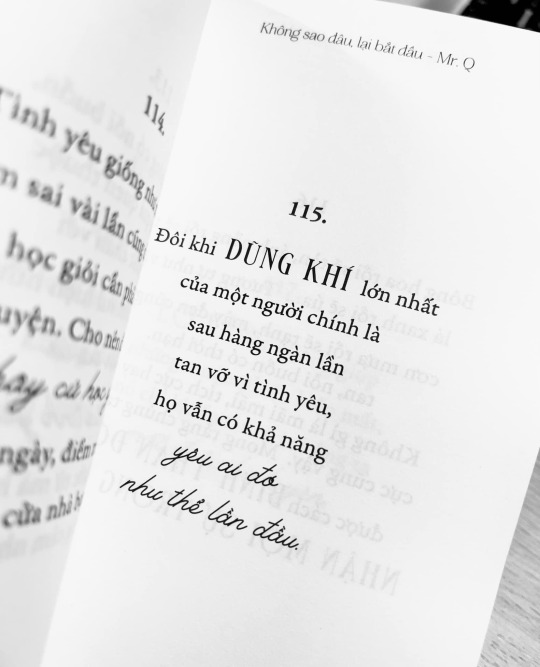 114.
Tình yêu giống như
sai vài lần cũng
học giỏi cần
Cho nên
hãy cứ học
ngày, điểm
cửa nhà
Không sao đâu, lại bắt đầu - Mr. Q
115.
Đôi khi DŨNG KHÍ lớn nhất
của một người chính là
sau hàng ngàn lần
tan vỡ vì tình yêu,
họ vẫn có khả năng
yêu ai đó
như thể lần đầu.